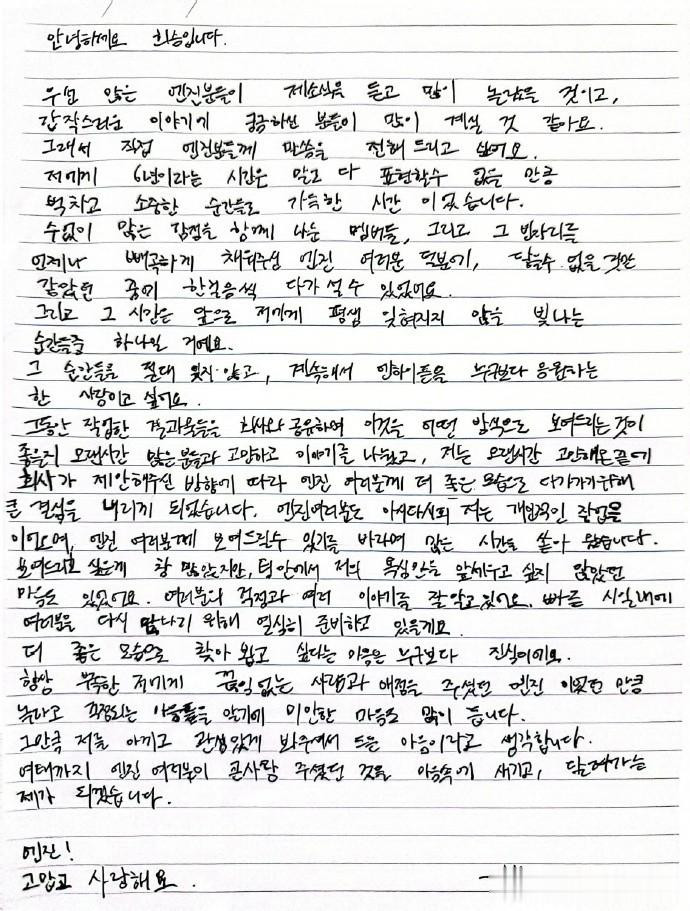 안녕하세요 희승입니다.
우선 많은 엔진분들이 제소식을 듣고 많이 놀랐을 것이고,
갑작스러운 이야기에 궁금하신 분들이 많이 계실 것 같아요.
그래서 직접 엔진분들께 말씀을 전해 드리고 싶어요.
저에게 6년이라는 시간은 말로 다 표현할수 없을 만큼
벅차고 소중한 순간들로 가득한 시간 이었습니다.
수없이 많은 감정을 함께 나눈 멤버들, 그리고 그 빈자리를
언제나 빼곡하게 채워주신 엔진 여러분 덕분에, 닿을수 없을 것만
같았던 꿈에 한걸음씩 다가 설 수 있었어요.
그리고 그 시간은 앞으로 저에게 평생 잊혀지지 않을 빛나는
순간들중 하나일 거에요.
그 순간들을 절대 잊지 않고, 계속해서 엔하이픈을 누구보다 응원하는
한 사람이고 싶어요.
그동안 작업한 결과물들을 회사와 공유하며 이것을 어떤 방식으로 보여드리는것이
좋을지 오랜시간 많은 분들과 고민하고 이야기를 나눴고, 저는 오랜시간 고민해온 끝에
회사가 제안해주신 방향에 따라 엔진 여러분께 더 좋은 모습으로 다가가기위해
큰 결심을 내리게 되었습니다. 엔진여러분도 아시다시피 저는 개인적인 작업을
이어오며, 엔진 여러분께 보여드릴수 있기를 바라며 많은 시간을 쏟아 왔습니다.
보여드리고 싶은게 참 많았지만, 팀 안에서 저의 욕심만을 앞세우고 싶지 않았던
마음도 있었어요. 여러분의 걱정과 여러 이야기를 잘 알고있어요. 빠른 시일내에
여러분을 다시 만나기 위해 열심히 준비하고 있을게요.
더 좋은 모습으로 찾아 뵙고 싶다는 마음은 누구보다 진심이에요.
항상 부족한 저에게 끊임없는 사랑과 애정을 주셨던 엔진 이었던 만큼
놀라고 걱정되는 마음들을 알기에 미안한 마음도 많이 듭니다.
그만큼 저를 아끼고 관심있게 봐주셔서 드는 마음이라고 생각합니다.
여태까지 엔진 여러분이 큰사랑 주셨던 것을 마음속에 새기고, 달려가는
제가 되겠습니다.
엔진!
고맙고 사랑해요.